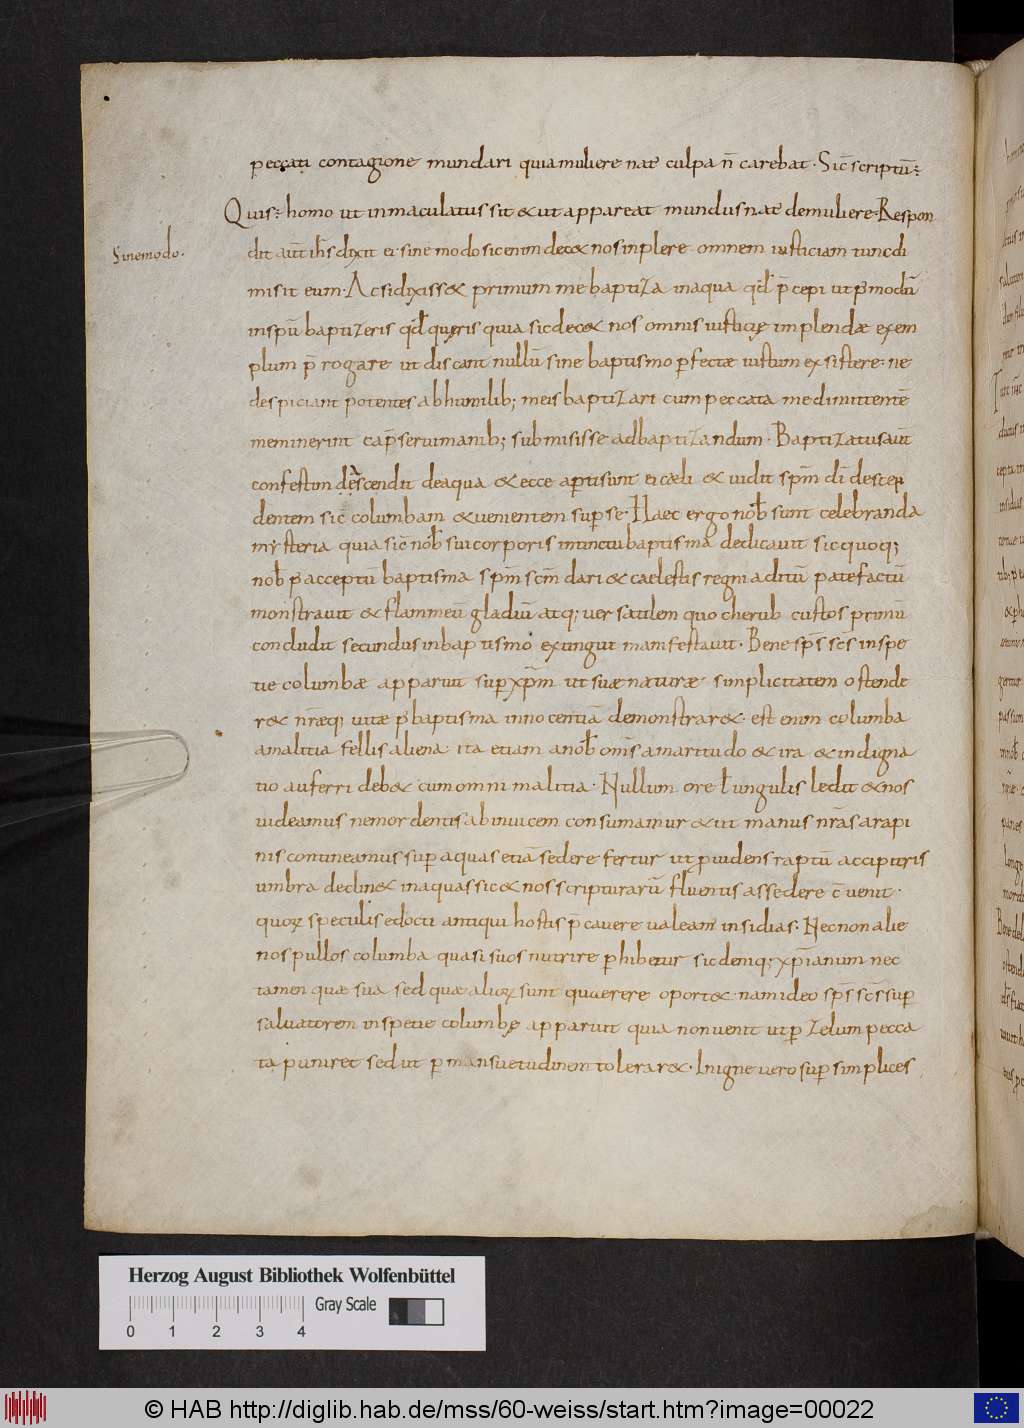 peccati contagione mundari quia muliere nat̄ culpa n̄ carebat. Sic̄ scriptū÷
Quis÷ homo ut inmaculatus sit & ut appareat mundus nat̄ de muliere. Respon
Sine modo.
dit aut̄ ih̄s dixit ei. sine modo sic enim dec& nos inplere omnem iusticiam tunc di
misit eum. Ac si dixiss& primum me baptiza in aqua qd̄ p̄cepi ut p modū
in spū baptizeris qd̄ quęris quia sic dec& nos omnis iusticię implendæ exem
plum p̄rogare ut discant nullū sine baptismo pfectæ iustum exsistere. ne
despiciant potentes ab humilib; meis baptizari cum peccata me dimittentē
meminerint cap̄ serui manib; submisisse ad baptizandum. Baptizatus aut̄
confestim descendit de aqua & ecce apti sunt ei cæli & uidit spm̄ dī descen
dentem sic̄ columbam & uenientem sup se. Haec ergo nob̄ sunt celebranda
mysteria quia sic̄ nob̄ sui corporis intinctu baptisma dedicauit sic quoq;
nob̄ p acceptū baptisma spm̄ scm̄ dari & caelestis regni aditū patefactū
monstrauit & flammeū gladiū atq; uersatilem quo cherub custos primū
concludit secundus in baptismo extingui manifestauit. Bene sps̄ scs̄ in spe
tie columbæ apparuit sup xpm̄ ut suæ naturæ simplicitatem ostende
r& nr̄æq; uitæ p baptisma innocentiā demonstrar&. est enim columba
a malitia fellis aliena ita etiam a nob̄ om̄is amaritudo & ira & indigna
tio auferri deb& cum omni malitia. Nullum ore ł ungulis ledit & nos
uideamus ne mordentis ab inuicem consumamur & ut manus nr̄as a rapi
nis contineamus sup aquas etiā sedere fertur ut puidens raptū accipitris
umbra declin& in aquas sic & nos scripturarū fluentis assedere c̄uenit.
quorꝫ speculis edocti antiqui hostis p̄cauere ualeam̄ insidias. Nec non alie
nos pullos columba quasi suos nutrire phibetur sic deniq; xpīanum nec
tamen quæ sua sed quæ aliorꝫ sunt quaerere oport&. nam ideo sps̄ scs̄ sup
saluatorem in spetie columbę apparuit quia non uenit ut p zelum pecca
ta puniret sed ut p mansuetudinem tolerar&. In igne uero sup simplices
Herzog August Bibliothek Wolfenbüttel
Gray Scale
0 1 2 3 4
© HAB http://diglib.hab.de/mss/60-weiss/start.htm?image=00022